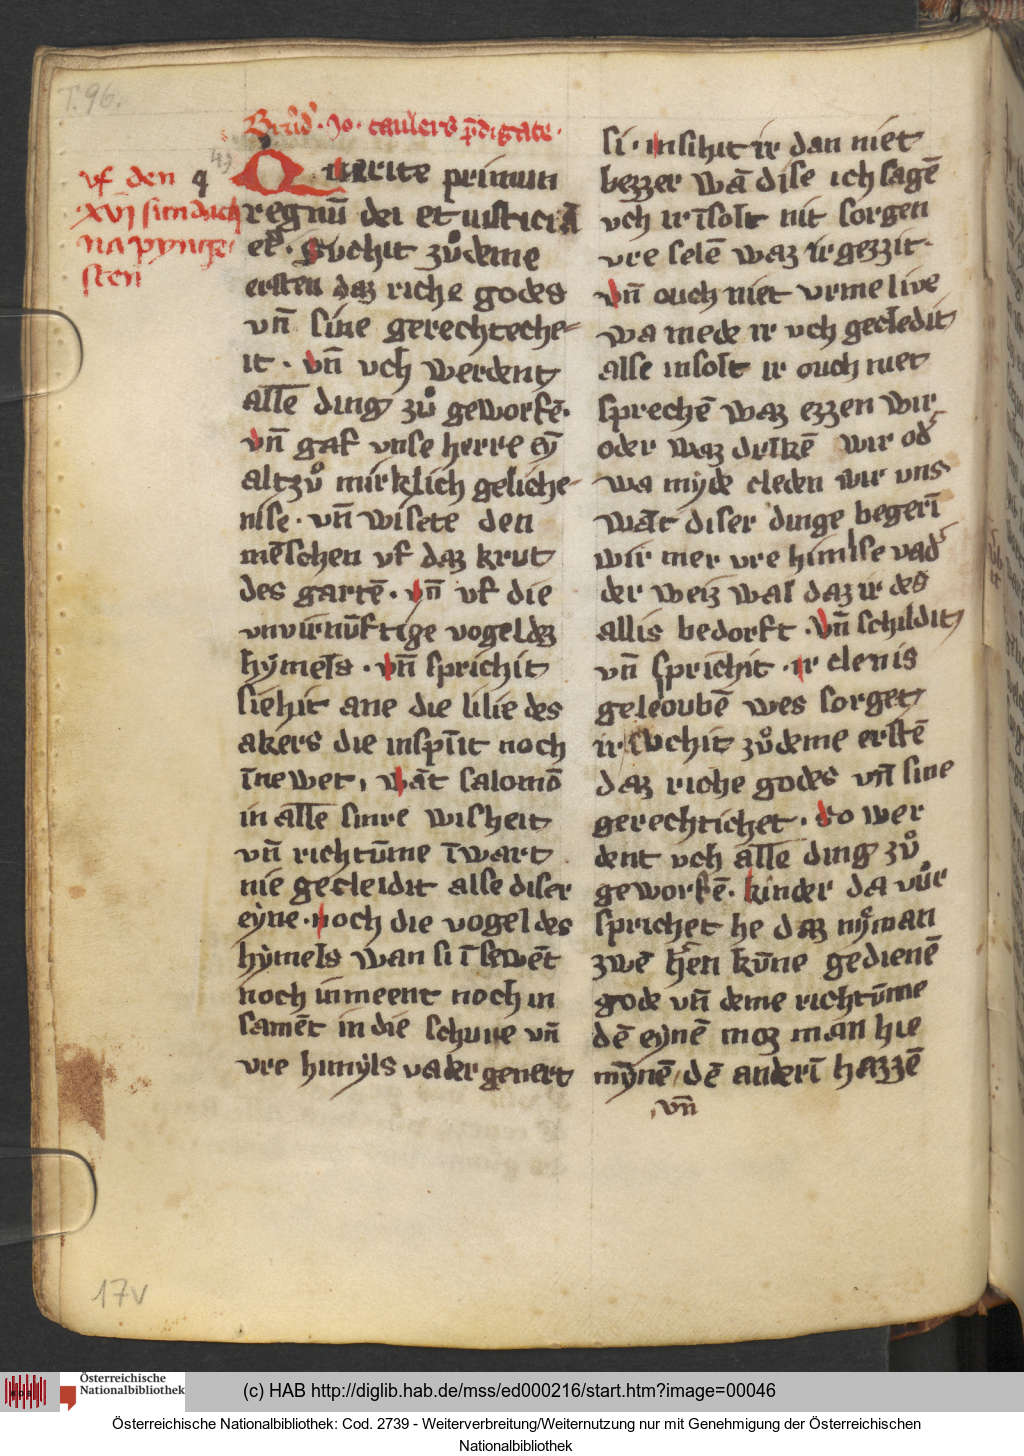 T. 96.
Brud' . Jo . taulers p̄digate .
vf den
XVJ sundach
na pynge
sten
Querite primum
regnū dei et iusticiā
ei' . Suchit zuͦ deme
ersten daz riche godes
vn̄ sine gerechteche-
it . vn̄ vch werdent
alle ding zuͦ geworfē .
vn̄ gaf vnse herre eȳ
altzuͦ mirklich geliche-
nise . vn̄ wisete den
mēschen vf daz krut
des gartē . vn̄ vf die
vnvirnūftige vogel dez
hymels . vn̄ sprichit
siehit ane die lilie des
akers die inspīt noch
īnewet , wāt salomō
in alle sinre wisheit
vn̄ richtūme īwart
nie gecleidit alse diser
eyne . noch die vogel des
hymels wan si ī sewēt
noch inmeent noch in
samēt in die schure vn̄
vre himyls vader genert
si . insihit ir dan niet
bezzer wā dise ich sagē
vch ir īsolt nit sorgen
vre selē waz ir gezzit .
vn̄ ouch niet vrme live
wa mede ir vch gecledit
alse insolt ir ouch niet
sprechē waz ezzen wir
oder waz drīkē wir od'
wa myde cleden wir vns
Wāt diser dinge begerī
wir mer vre himelse vad'
der weiz wal daz ir des
allis bedorft . Vn̄ schildit
vn̄ sprichit . ir clenis
geleoubē wes sorget
ir suchit zuͦ deme erstē
daz riche godes vn̄ sine
gerechtichet . so wer
dent vch alle ding zuͦ
geworfē . kinder da vuͦr
sprichet he daz nyman
zwē h'en kūne gedienē
gode vn̄ deme richtūme
dē eynē moz man hie
mȳnē / dē anderī hazzē
vn̄
17v
(c) HAB http://diglib.hab.de/mss/ed000216/start.htm?image=00046
Österreichische Nationalbibliothek
Österreichische Nationalbibliothek: Cod. 2739 - Weiterverbreitung/Weiternutzung nur mit Genehmigung der Österreichischen
Nationalbibliothek